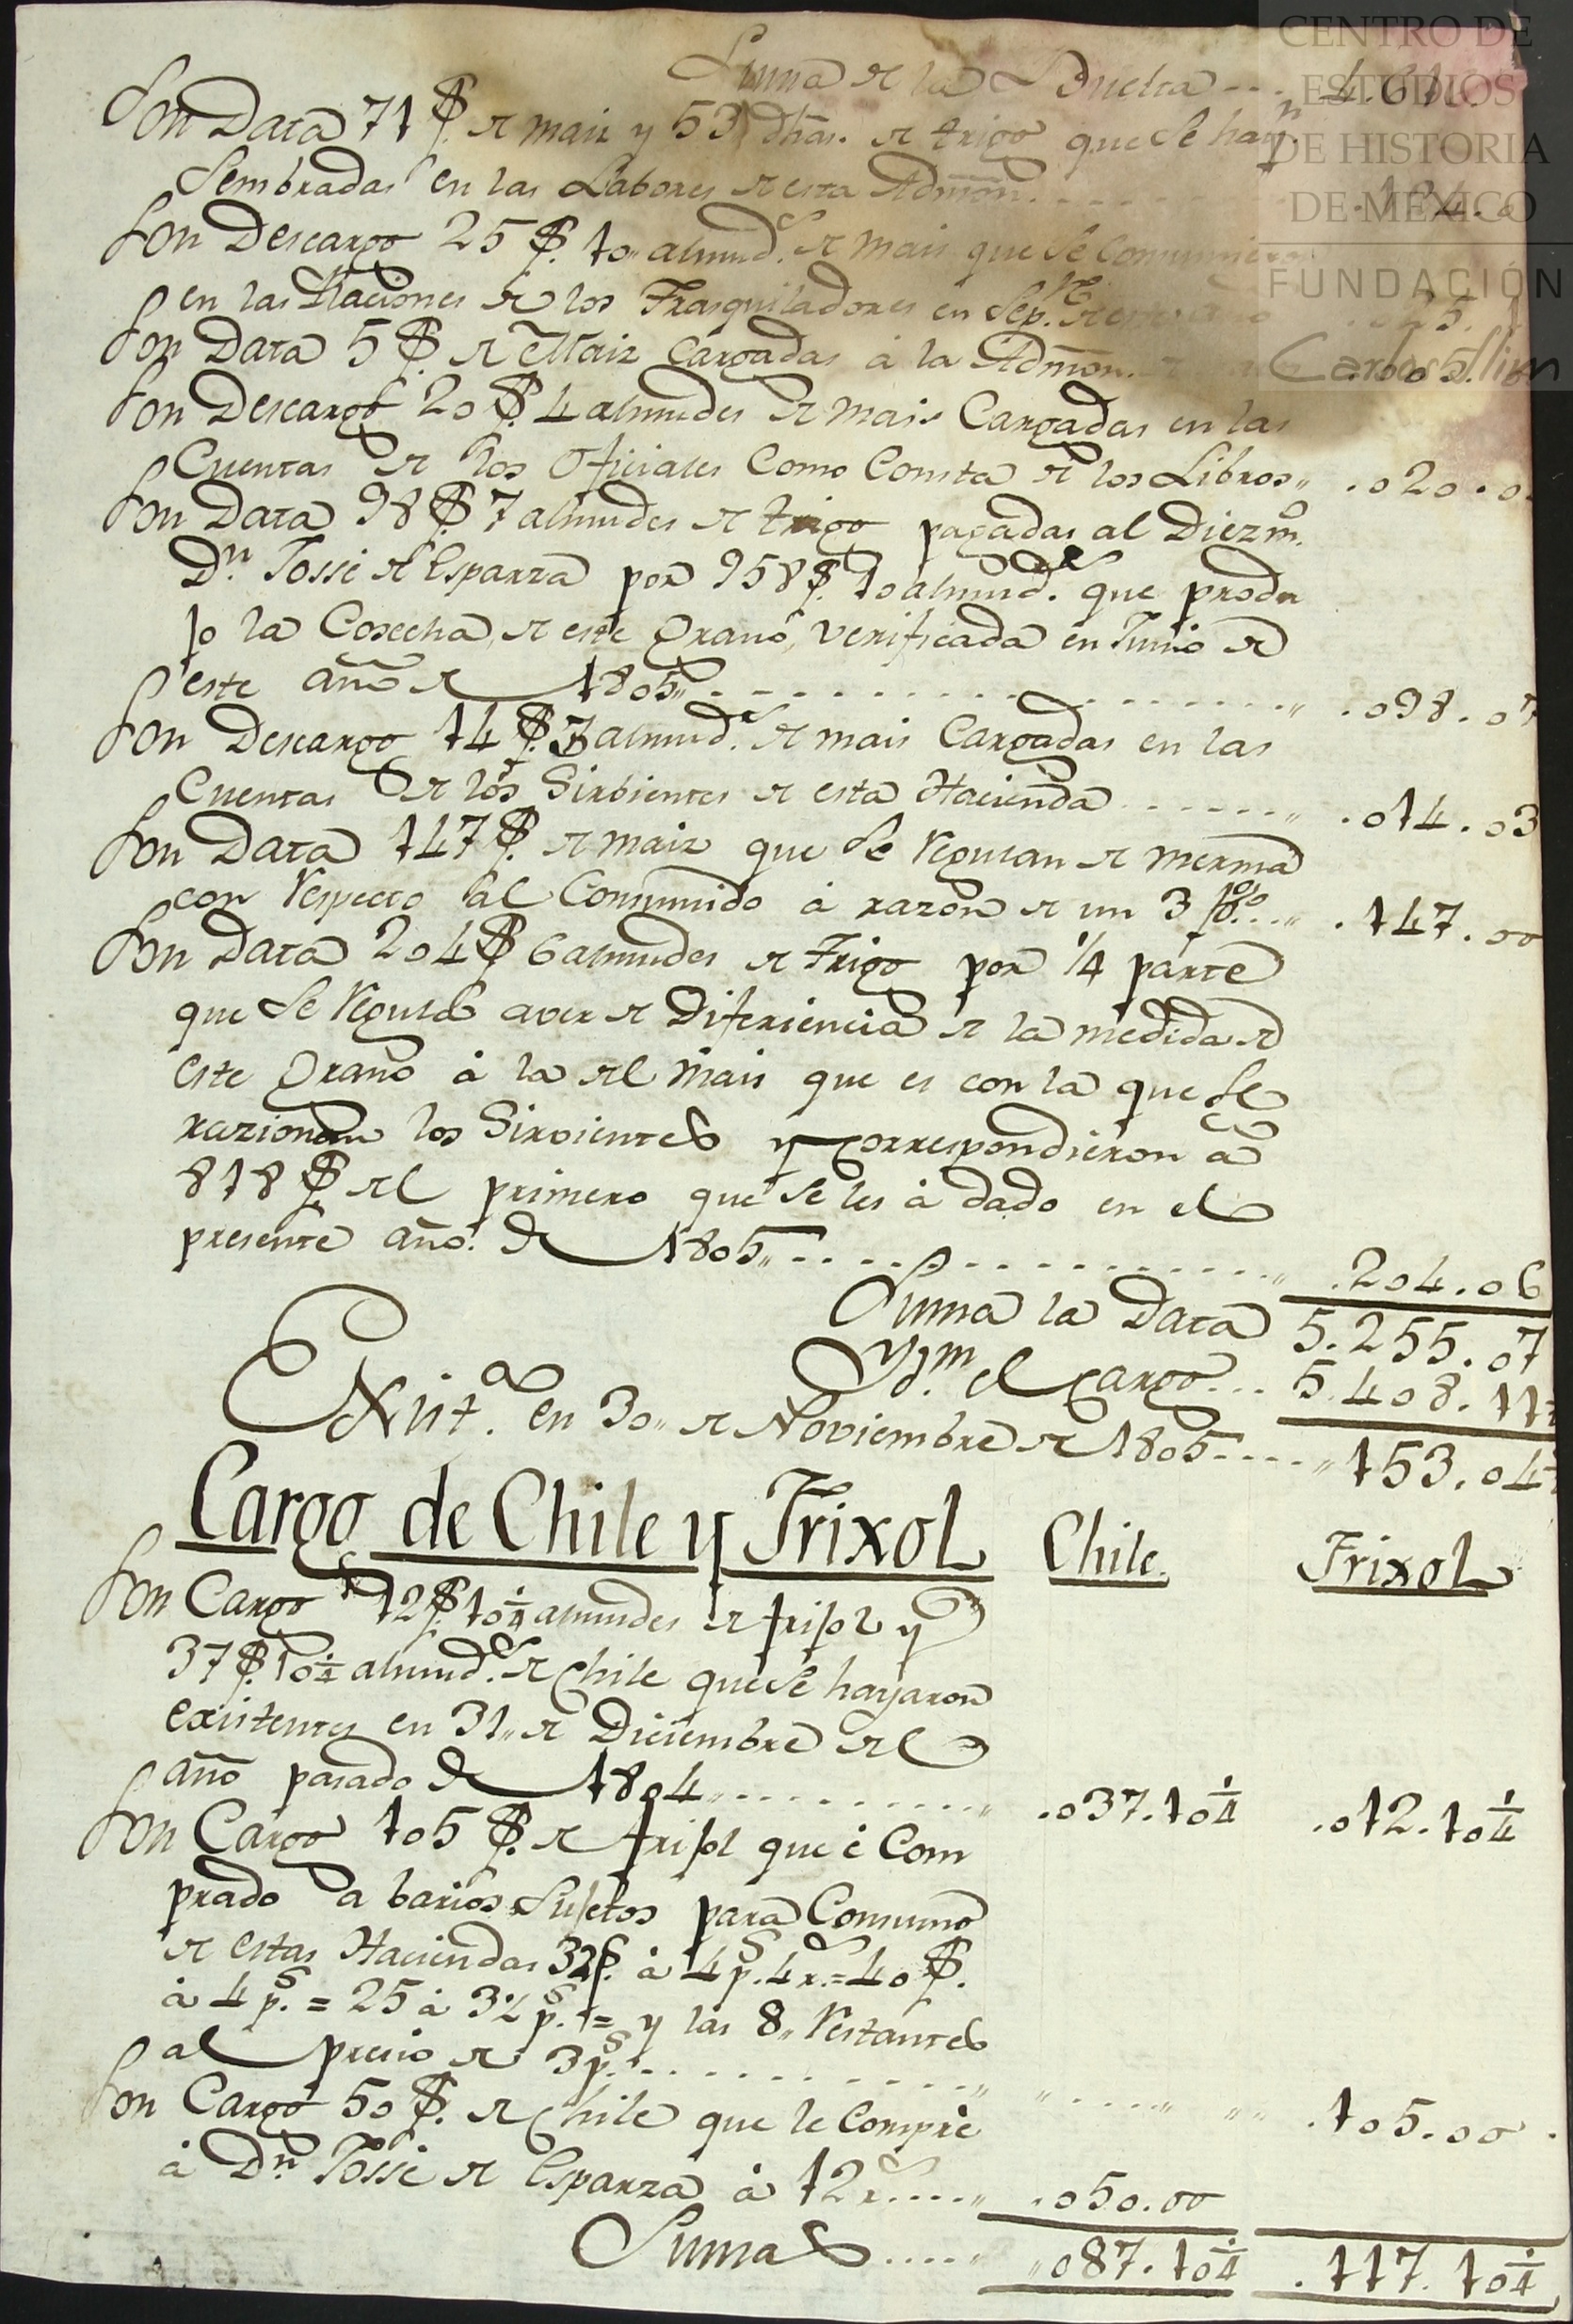 Suma de la Buelta .... 4.61
Son Data 71 f. de maiz y 53 dhas. de trigo que se han
Sembradas en las Labores de esta Admon. .124.0
Son Descargo 25 f. 10,, almud.s de mais que se consumieron
en las Raciones de los Trasquiladores en Sep.re de este año .025.1
Son Data 5 f. de Maiz Cargadas á la Admon. .005.
Son Descargo 20 f. 4 almudes de mais Cargadas en las
Cuentas de los Oficiales Como Consta de los Libros,, .020.0
Son Data 98 f. 7 almudes de trigo pagadas al Diezm.o
Dn. Josse de Esparza por 958 f. 10 almud.s que produ
jo la Cosecha de este grano, verificada en Junio de
este año de 1805,, ........ .098.07
Son Descargo 14 f. 3 almud.s de mais Cargadas en las
Cuentas de los Sirbientes de esta Hacienda ...... .014.03
Son Data 147 f. de maiz que se regulan de merma
con respecto al Consumido á razon de un 3 p%... .147.00
Son Data 204 f. 6 almudes de Trigo por 1/4 parte
que se reguló aver de Diferiencia de la medida de
este grano á la del mais que es con la que se
razionan los Sirvientes y correspondieron á
818 f. del primero que se les á dado en el
presente año. de 1805,, ........ .204.06
Suma la Data 5.255.07
Yd.m el cargo... 5.408.11
Exist.a en 30,, de Noviembre de 1805 .... 153.04
Cargo de Chile y Frixol Chile. Frixol
Son Cargo 12 f. 10 1/4 almudes de frijol y
37 f. 10 1/4 almud.s de Chile que se hayaron
existentes en 31,, de Diciembre del
año pasado de 1804,, ........ .037.10 1/4 .012.10 1/4
Son Cargo 105 f. de frijol que é Com
prado a barios Sujetos para Consumo
de estas Haciendas 32 f. á 4 p.s 4 r.s = 40 f.
á 4 p.s = 25 á 3 1/2 p.s = y las 8,, restantes
al precio de 3 p.s ........ .105.00
Son Cargo 50 f. de Chile que le Compré
á Dn. Josse de Esparza á 12 r.s .... .050.00
Sumas ..... 087.10 1/4 .117.10 1/4
CENTRO DE
ESTUDIOS
DE HISTORIA
DE MÉXICO
FUNDACIÓN
Carlos Slim